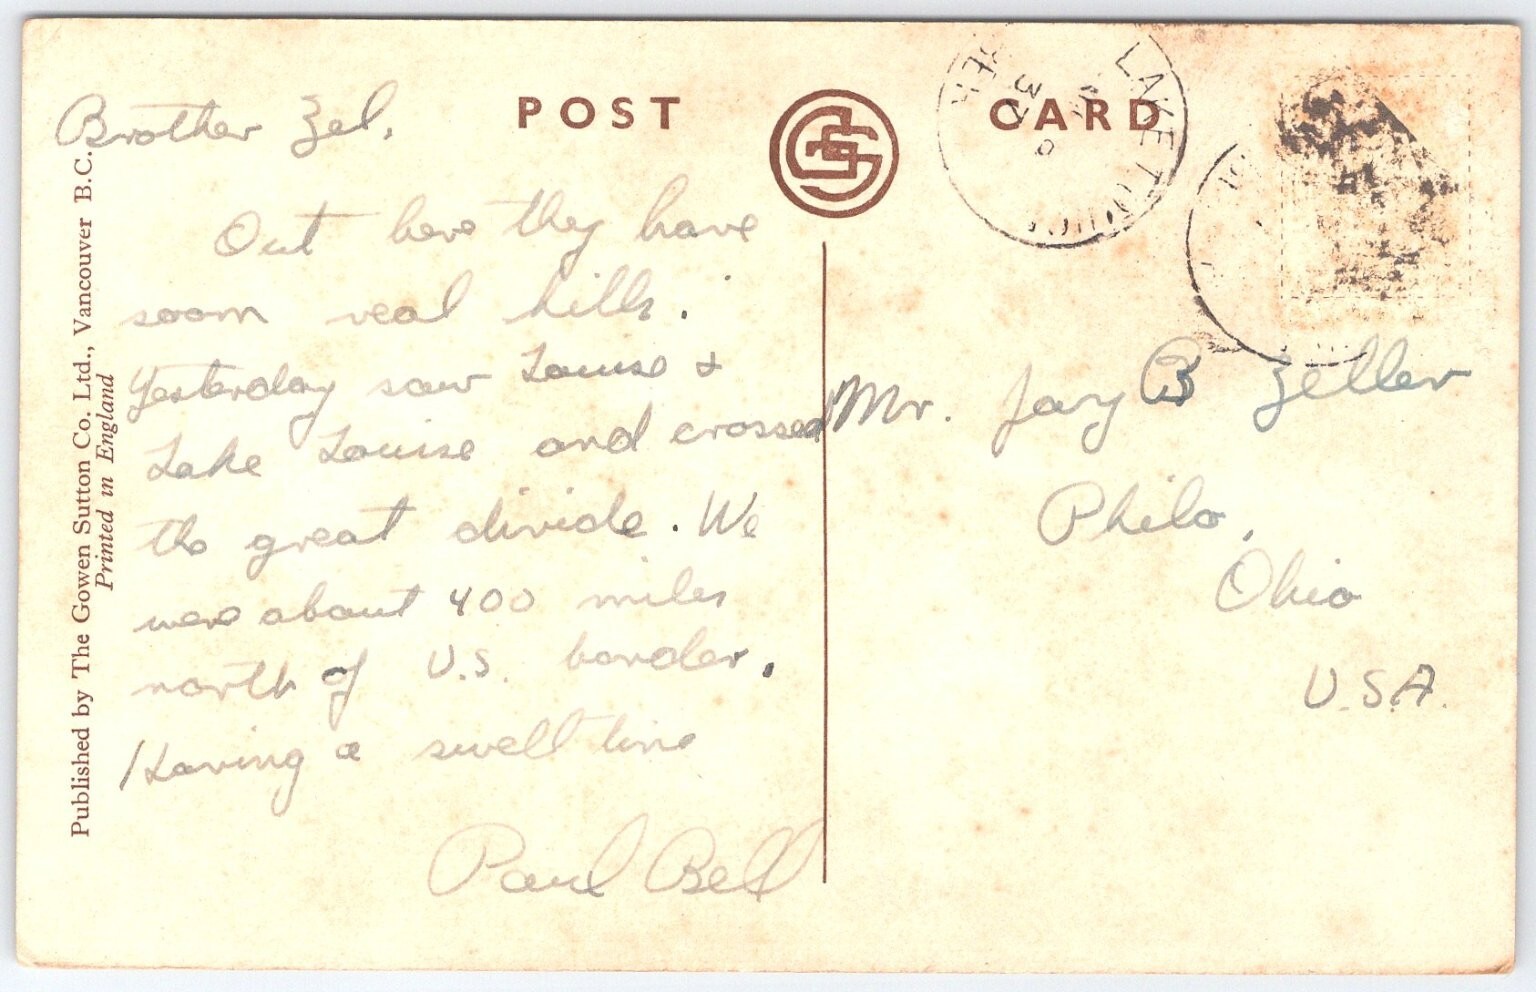 POST CARD
Brother Zel,
Out here they have
soom real hills.
Yesterday saw Louise &
Lake Louise and crossed
the great divide. We
were about 400 miles
north of U.S. border.
Having a swell time
Paul Bell
Mr. Jay B Zeller
Philo,
Ohio
U.S.A.
Published by The Gowen Sutton Co. Ltd., Vancouver B.C.
Printed in England
LAKE
37